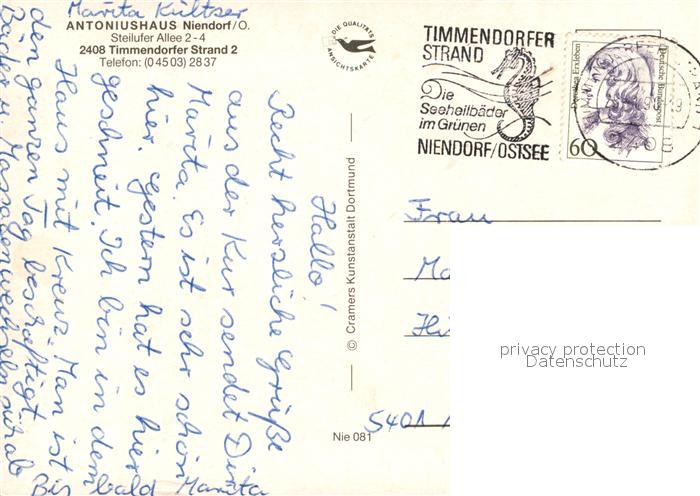 Marita Kültser
ANTONIUSHAUS Niendorf/O.
Steilufer Allee 2-4
2408 Timmendorfer Strand 2
Telefon: (0 45 03) 28 37
Hallo!
Recht herzliche Grüße
aus der Kur sendet Dir
Marita. Es ist sehr schön
hier. Gestern hat es hier
geschneit. Ich bin in dem
Haus mit Kreuz. Man ist
den ganzen Tag beschäftigt.
Bäder u. Massagen wechseln sich ab
Bis bald Marita
DIE QUALITÄTS
ANSICHTSKARTE
© Cramers Kunstanstalt Dortmund
Nie 081
TIMMENDORFER
STRAND
Die
Seeheilbäder
im Grünen
NIENDORF/OSTSEE
Dorothea Erxleben
Deutsche Bundespost
60
Frau
5401
privacy protection
Datenschutz